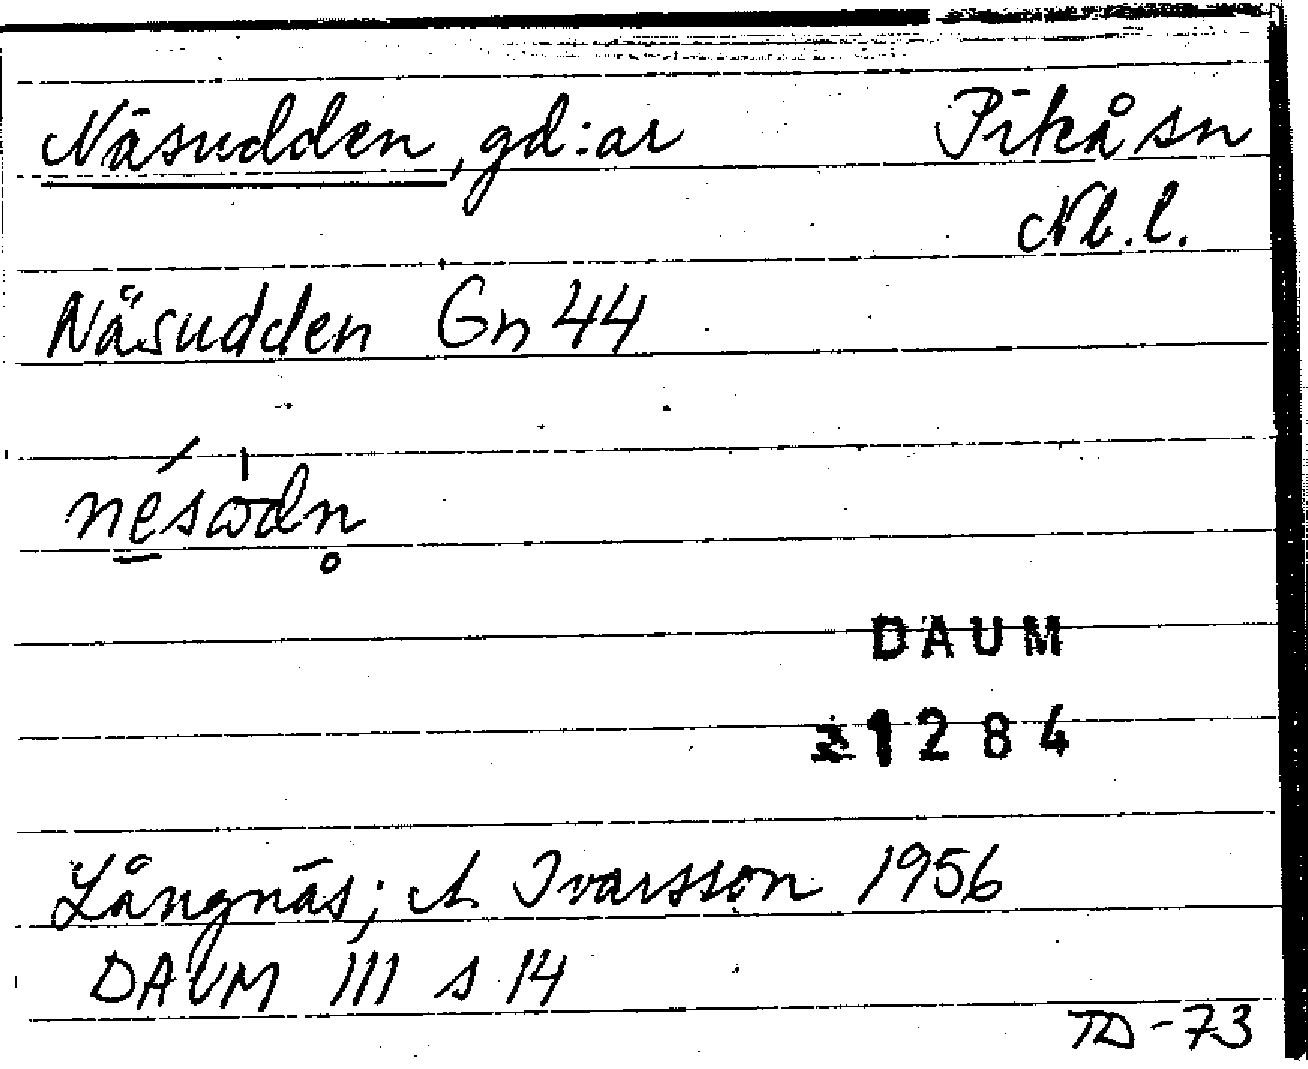 Näsudden, gd:ar Piteå sn
Nb.l.
Näsudden Gn 44
nésòdn̥
DAUM
1284
Långnäs; A Ivarsson 1956
DAUM III s 14
TD-73